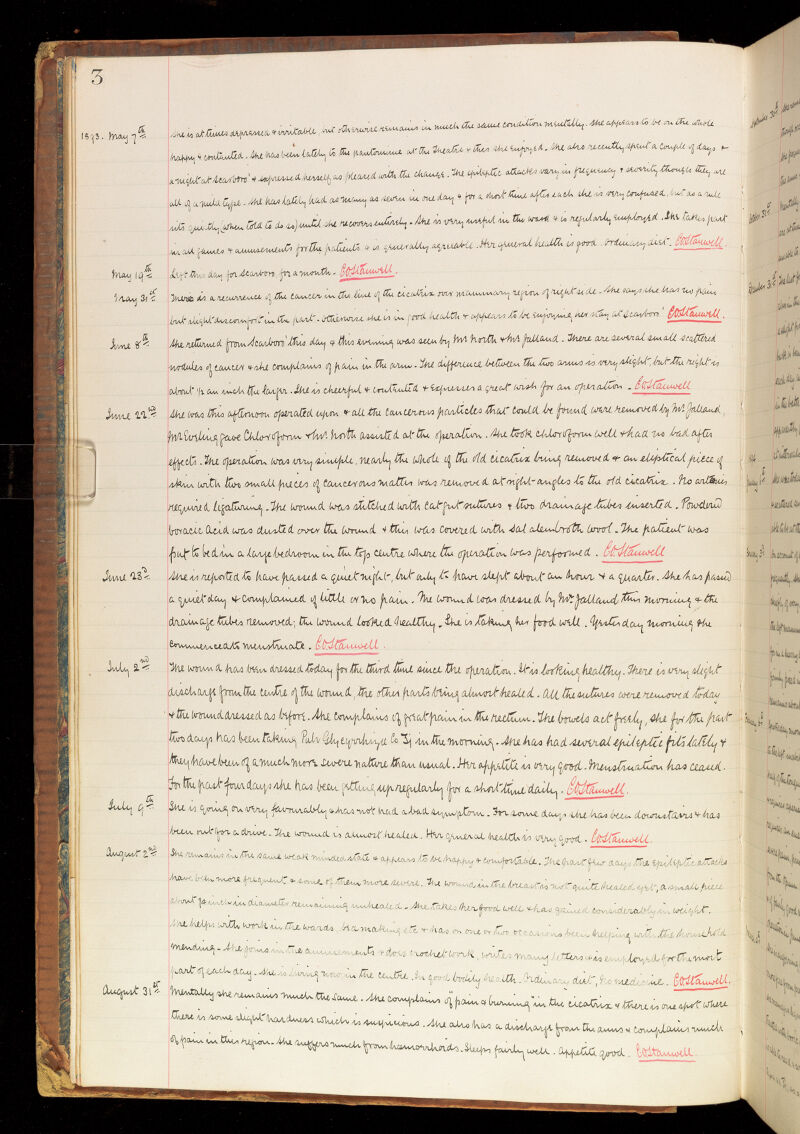 3
1893. May 7th She is at times depressed & irritable, but otherwise remains in much the same condition mentally. She appears to be on the whole
happy & contented. She has been lately to the pantomime at the Theatre & this she enjoyed. She also recently spent a couple of days &
a night at Scarboro' & expressed herself as pleased with the change. The epileptic attacks vary in frequency & severity though they are
all of a mild type. She has lately had as many as seven in one day & for a short time after each she is very confused, but as a rule
sits quietly (when told to do so) until she recovers entirely. She is very useful in the ward & is regularly employed. She takes part
in all games & amusements for the patients & is generally agreeable. Her general health is good. Ordinary diet. COStanwell.
May 19th Left this day for Scarboro, for a month. COStanwell.
May 31st There is a recurrence of the cancer in the line of the cicatrix over mammary region of right side. She says she has no pain
but slight discomfort in the part. Otherwise she is in good health & appears to be enjoying her stay at Scarboro' COStanwell.
June 8th She returned from Scarboro' this day & this evening was seen by Mr North & Mr Jalland. There are several small scattered
nodules of cancer & she complains of pain in the arm. The difference between the two arms is very slight, but the right is
about 1/2 an inch the larger. She is cheerful & contented & expresses a great wish for an operation. COStanwell
June 22nd She was this afternoon operated upon & all the cancerous particles that could be found were removed by Mr Jalland,
Mr gave Chloroform & Mr North assisted at the operation. She took chloroform well & had no bad after
effects. The operation was very simple, nearly the whole of the old cicatrix being removed & an eliptical piece of
skin with two small pieces of cancerous matter was removed at right-angles to the old cicatrix. No arteries
required ligaturing. The wound was stitched with catgut sutures & two drainage tubes inserted. Powdered
boracic acid was dusted over the wound & this was covered with sal alembroth wool. The patient was
put to bed in a large bedroom in the top centre where the operation was performed. COStanwell
June 23rd She is reported to have passed a quiet night, but only to have slept about an hour & a quarter. She has passed
a quiet day & complained of little or no pain. The wound was dressed by Mr Jalland this morning & the
drainage tubes removed; the wound looked healthy. She is taking her food well. Yesterday morning she
commenced to menstruate. COStanwell.
July 2nd The wound has been dressed today for the third time since the operation. It is looking healthy. There is very slight
discharge from the centre of the wound, the other parts being almost healed. All the sutures were removed today
& the wound dressed as before. She complains of great pain in the rectum. The bowels act freely, she for the past
two days has been taking Pulv Glycyrrhizae Co in the morning. She has had several epileptic fits lately &
they have been of a much more severe nature than usual. Her appetite is very good. Menstruation has ceased.
For the past four days she has been getting up regularly for a short time daily. COStanwell.
July 9th She is going on very favourably & has not had a bad symptom. For some days she has been downstairs & has
been out for a drive. The wound is almost healed. Her general health is very good. COStanwell.
August 2nd She remains in the same weak minded state & appears to be happy & comfortable. The past few days the epileptic attacks
have been more frequent & some of them more severe. The wound in the breast is not quite healed yet, a small piece
about inch in diameter remaining unhealed. She takes her food well & has gained considerably in weight.
She helps with work in the wards, bed making etc & has on one or two occasions been helping with the household
mending. She joins in the amusements & does crochet work, writes many letters & is employed for the most
part of each day. She is living now in the centre. In good bodily health. Ordinary diet, No medicine. COStanwell.
August 31st Mentally she remains much the same. She complains of "pain & burning" in the cicatrix & there is one spot where
there is some slight hardness which is suspicious. She also has a discharge from the anus & complains much
of pain in this region. She suffers much from haemorrhoids. Sleeps fairly well. Appetite good. COStanwell.